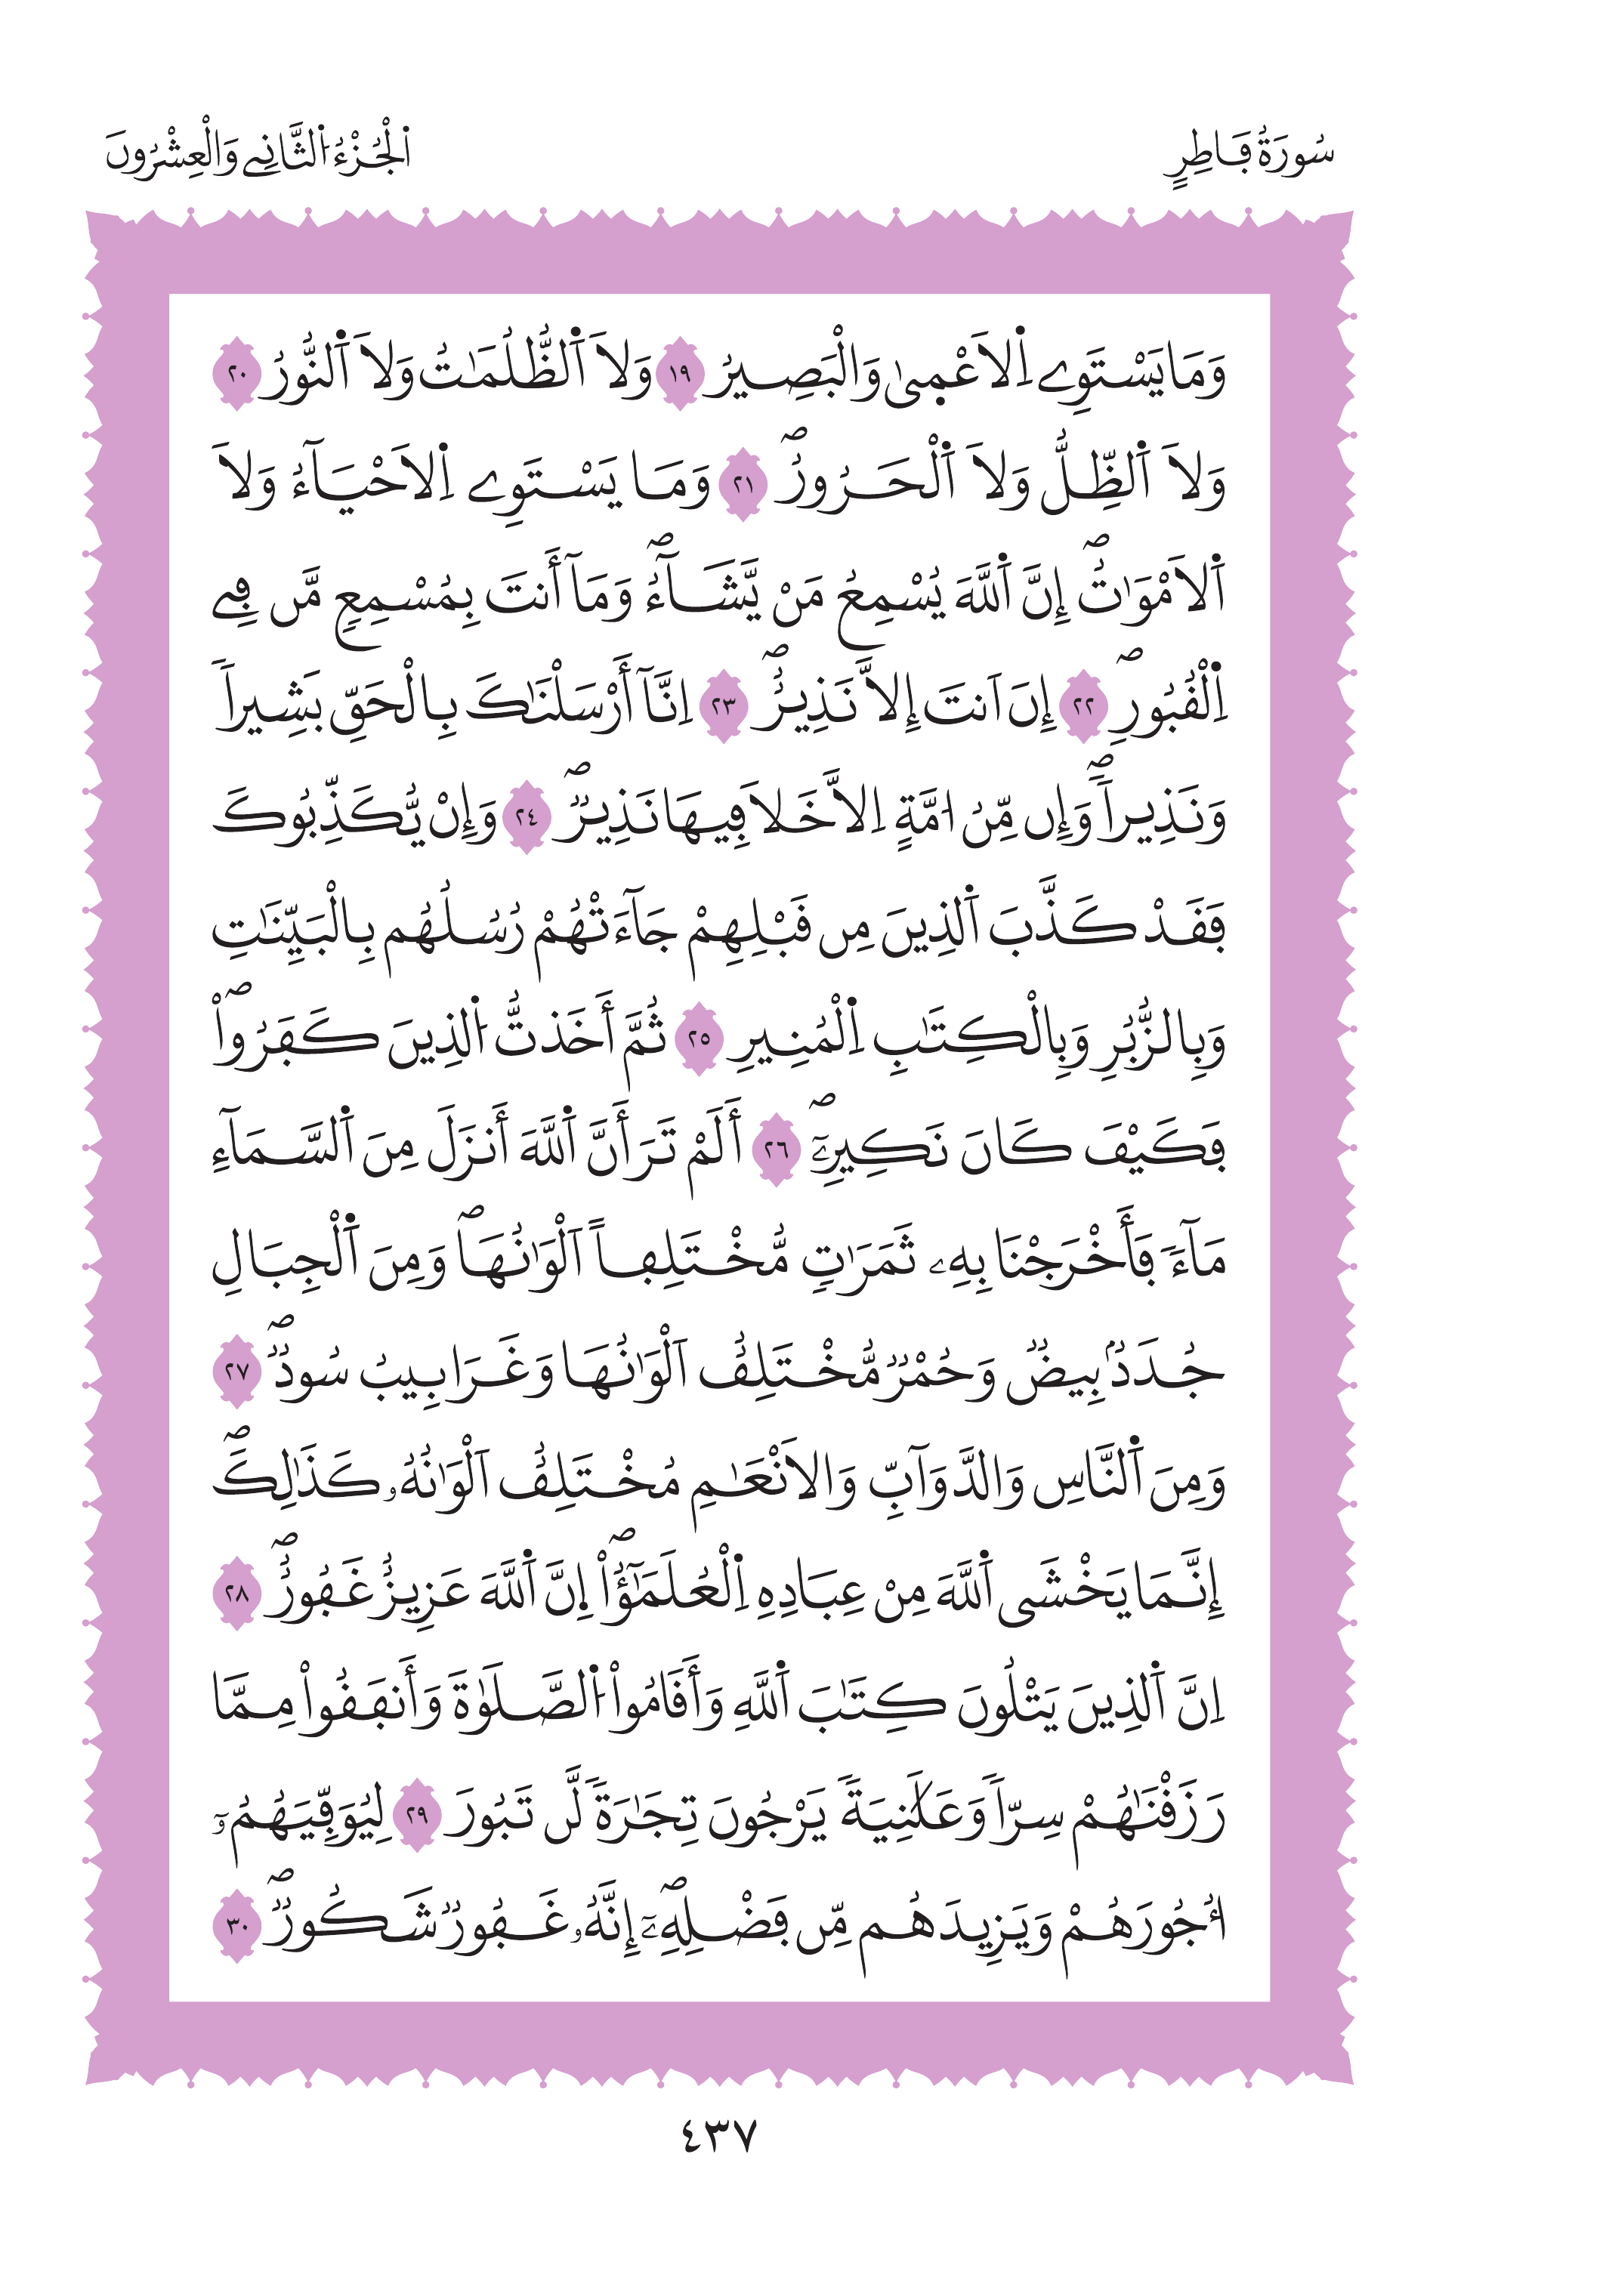 سُورَةُ فَاطِرٍ
اَلْجُزْءُ الثَّانِي وَالْعِشْرُونَ
وَمَا يَسْتَوِے اِ۬لَاعْم۪ىٰ وَالْبَصِيرُ ١٩ وَلَا اَ۬لظُّلُمَٰتُ وَلَا اَ۬لنُّورُ ٢٠
وَلَا اَ۬لظِّلُّ وَلَا اَ۬لْحَرُورُۖ ٢١ وَمَا يَسْتَوِے اِ۬لَاحْيَآءُ وَلَا
اَ۬لَامْوَٰتُۖ إِنَّ اَ۬للَّهَ يُسْمِعُ مَنْ يَّشَآءُۖ وَمَآ أَنتَ بِمُسْمِعٍ مَّن فِے
اِ۬لْقُبُورِۖ ٢٢ إِنَ اَنتَ إِلَّا نَذِيرٌۖ ٢٣ اِنَّآ أَرْسَلْنَٰكَ بِالْحَقِّ بَشِيراٗ
وَنَذِيراٗۖ وَإِن مِّنُ ا۟مَّةٍ اِلَّا خَلَا فِيهَا نَذِيرٞۖ ٢٤ وَإِنْ يُّكَذِّبُوكَ
فَقَدْ كَذَّبَ اَ۬لذِينَ مِن قَبْلِهِمْ جَآءَتْهُمْ رُسُلُهُم بِالْبَيِّنَٰتِ
وَبِالزُّبُرِ وَبِالْكِتَٰبِ اِ۬لْمُنِيرِ ٢٥ ثُمَّ أَخَذتُّ اُ۬لذِينَ كَفَرُواْۖ
فَكَيْفَ كَانَ نَكِيرِۦٓۖ ٢٦ أَلَمْ تَرَ أَنَّ اَ۬للَّهَ أَنزَلَ مِنَ اَ۬لسَّمَآءِ
مَآءٗ فَأَخْرَجْنَا بِهِۦ ثَمَرَٰتٖ مُّخْتَلِفاً اَلْوَٰنُهَاۖ وَمِنَ اَ۬لْجِبَالِ
جُدَدُۢ بِيضٞ وَحُمْرٞ مُّخْتَلِفٌ اَلْوَٰنُهَا وَغَرَابِيبُ سُودٞۖ ٢٧
وَمِنَ اَ۬لنَّاسِ وَالدَّوَآبِّ وَالَانْعَٰمِ مُخْتَلِفٌ اَلْوَٰنُهُۥ كَذَٰلِكَۖ
إِنَّمَا يَخْشَى اَ۬للَّهَ مِنْ عِبَادِهِ اِ۬لْعُلَمَٰٓؤُاْۖ اِ۪نَّ اَ۬للَّهَ عَزِيزٌ غَفُورٌۖ ٢٨
اِنَّ اَ۬لذِينَ يَتْلُونَ كِتَٰبَ اَ۬للَّهِ وَأَقَامُواْ اُ۬لصَّلَوٰةَ وَأَنفَقُواْ مِمَّا
رَزَقْنَٰهُمْ سِرّاٗ وَعَلَٰنِيَةٗ يَرْجُونَ تِجَٰرَةٗ لَّن تَبُورَ ٢٩ لِيُوَفِّيَهُمُۥٓ
أُجُورَهُمْ وَيَزِيدَهُم مِّن فَضْلِهِۦٓۖ إِنَّهُۥ غَفُورٞ شَكُورٞۖ ٣٠
٤٣٧